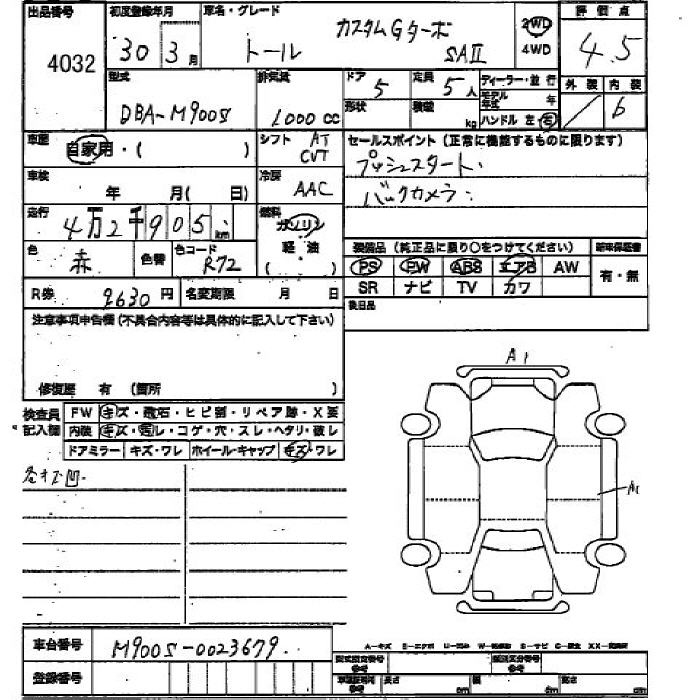 出品番号 初度登録年月 車名・グレード 評価点
4032 30年3月 トール カスタムGターボ SAⅡ 2WD 4WD 4.5
型式 排気量 ドア 定員 ディーラー・並行 外装 内装
DBA-M900S 1000cc 5 5人 モデル年式 年 6
形状 積載 kg ハンドル 左・右
車歴 自家用・( ) シフト AT CVT セールスポイント(正常に機能するものに限ります)
プッシュスタート.
車検 年 月( 日) 冷房 AAC バックカメラ.
走行 4万2千905km 燃料 ガソリン 軽油 ( )
装備品(純正品に限り○をつけてください) 新車保証書
色 赤 色替 色コード R72 PS PW ABS エアB AW 有・無
R券 9630円 名変期限 月 日 SR ナビ TV カワ
後日品
注意事項申告欄(不具合内容等は具体的に記入して下さい)
修復歴 有 (箇所 )
検査員記入欄 FW キズ・飛石・ヒビ割・リペア跡・X要
内装 キズ・汚レ・コゲ・穴・スレ・ヘタリ・破レ
ドアミラー キズ・ワレ ホイール・キャップ キズ・ワレ
各キズ凹.
A1
A1
車台番号 M900S-0023679.
登録番号
A-キズ E-エクボ U-凹み W-補修跡 S-サビ C-腐食 XX-交換済
型式指定番号 参考 類別区分番号 参考
長さ cm 幅 cm 高さ cm